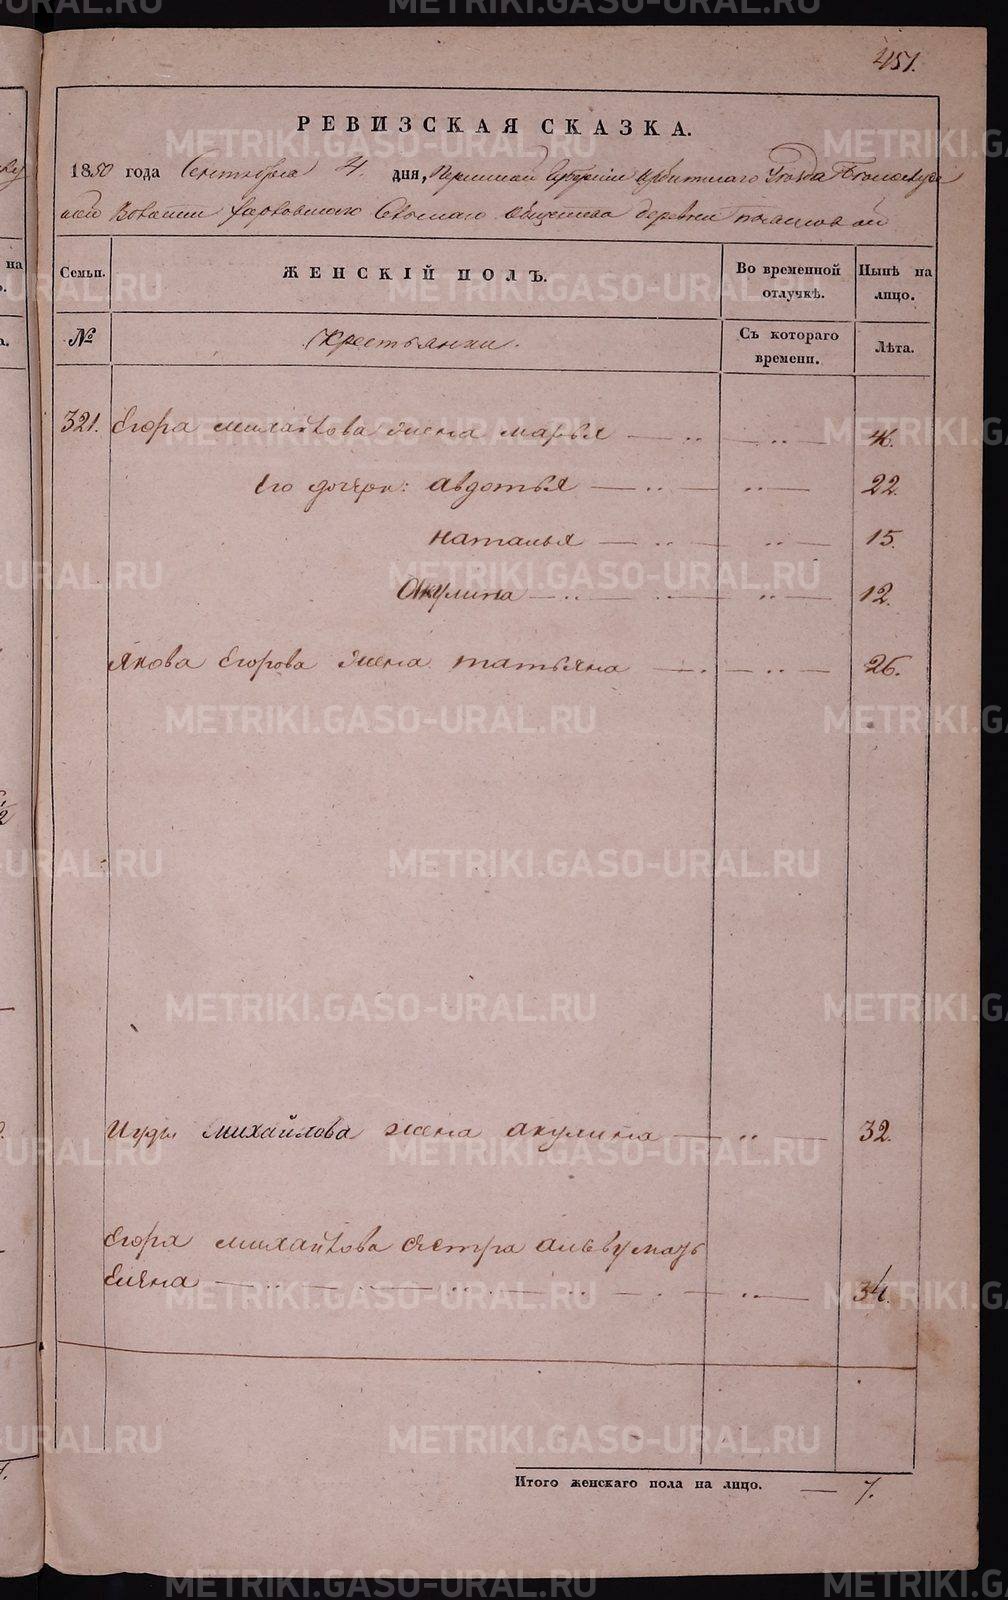 451.
РЕВИЗСКАЯ СКАЗКА.
1850 года Сентября 4 дня, Пермской Губернии Ирбитскаго Уезда
ской Волости Сельскаго общества деревни
Семьи. ЖЕНСКІЙ ПОЛЪ. Во временной отлучкѣ. Нынѣ на лицо.
№ Крестьянки. Съ котораго времени. Лѣта.
321. Егора михайлова жена марья 46.
Его дочери: авдотья 22.
наталья 15.
Акулина 12.
Якова Егорова жена татьяна 26.
Иуды михайлова жена акулина 32.
Егора михайлова сестра
Елена 34.
Итого женскаго пола на лицо. — 7.
METRIKI.GASO-URAL.RU